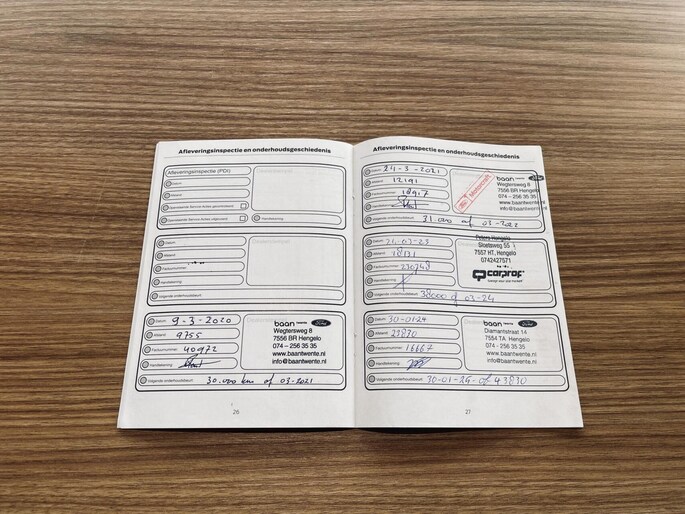 Afleveringsinspectie en onderhoudsgeschiedenis
Afleveringsinspectie (PDI)
Datum:
Afstand:
Handtekening:
Datum:
Afstand:
Factuurnummer:
Handtekening:
Volgende onderhoudsbeurt:
Datum: 9-3-2020
Afstand: 9755
Factuurnummer: 40972
Handtekening:
baan TWENTE Ford
Wegtersweg 8
7556 BR Hengelo
074 - 256 35 35
www.baantwente.nl
info@baantwente.nl
Volgende onderhoudsbeurt: 30.000 km of 03-2021
26
Afleveringsinspectie en onderhoudsgeschiedenis
Datum: 24-3-2021
Afstand: 12191
Factuurnummer:
Handtekening:
Motorcraft
baan TWENTE Ford
Wegtersweg 8
7556 BR Hengelo
074 - 256 35 35
www.baantwente.nl
info@baantwente.nl
Volgende onderhoudsbeurt: 31.000 of 03-2022
Datum:
Afstand:
Factuurnummer:
Handtekening:
Peters Hengelo
Sloetsweg 55
7557 HT, Hengelo
0742427571
carprof
Volgende onderhoudsbeurt: 38000 of 03-24
Datum: 30-01-24
Afstand: 23830
Factuurnummer: 16667
Handtekening:
baan TWENTE Ford
Diamantstraat 14
7554 TA Hengelo
074 - 256 35 35
www.baantwente.nl
info@baantwente.nl
Volgende onderhoudsbeurt: 30-01-25 of 43830
27